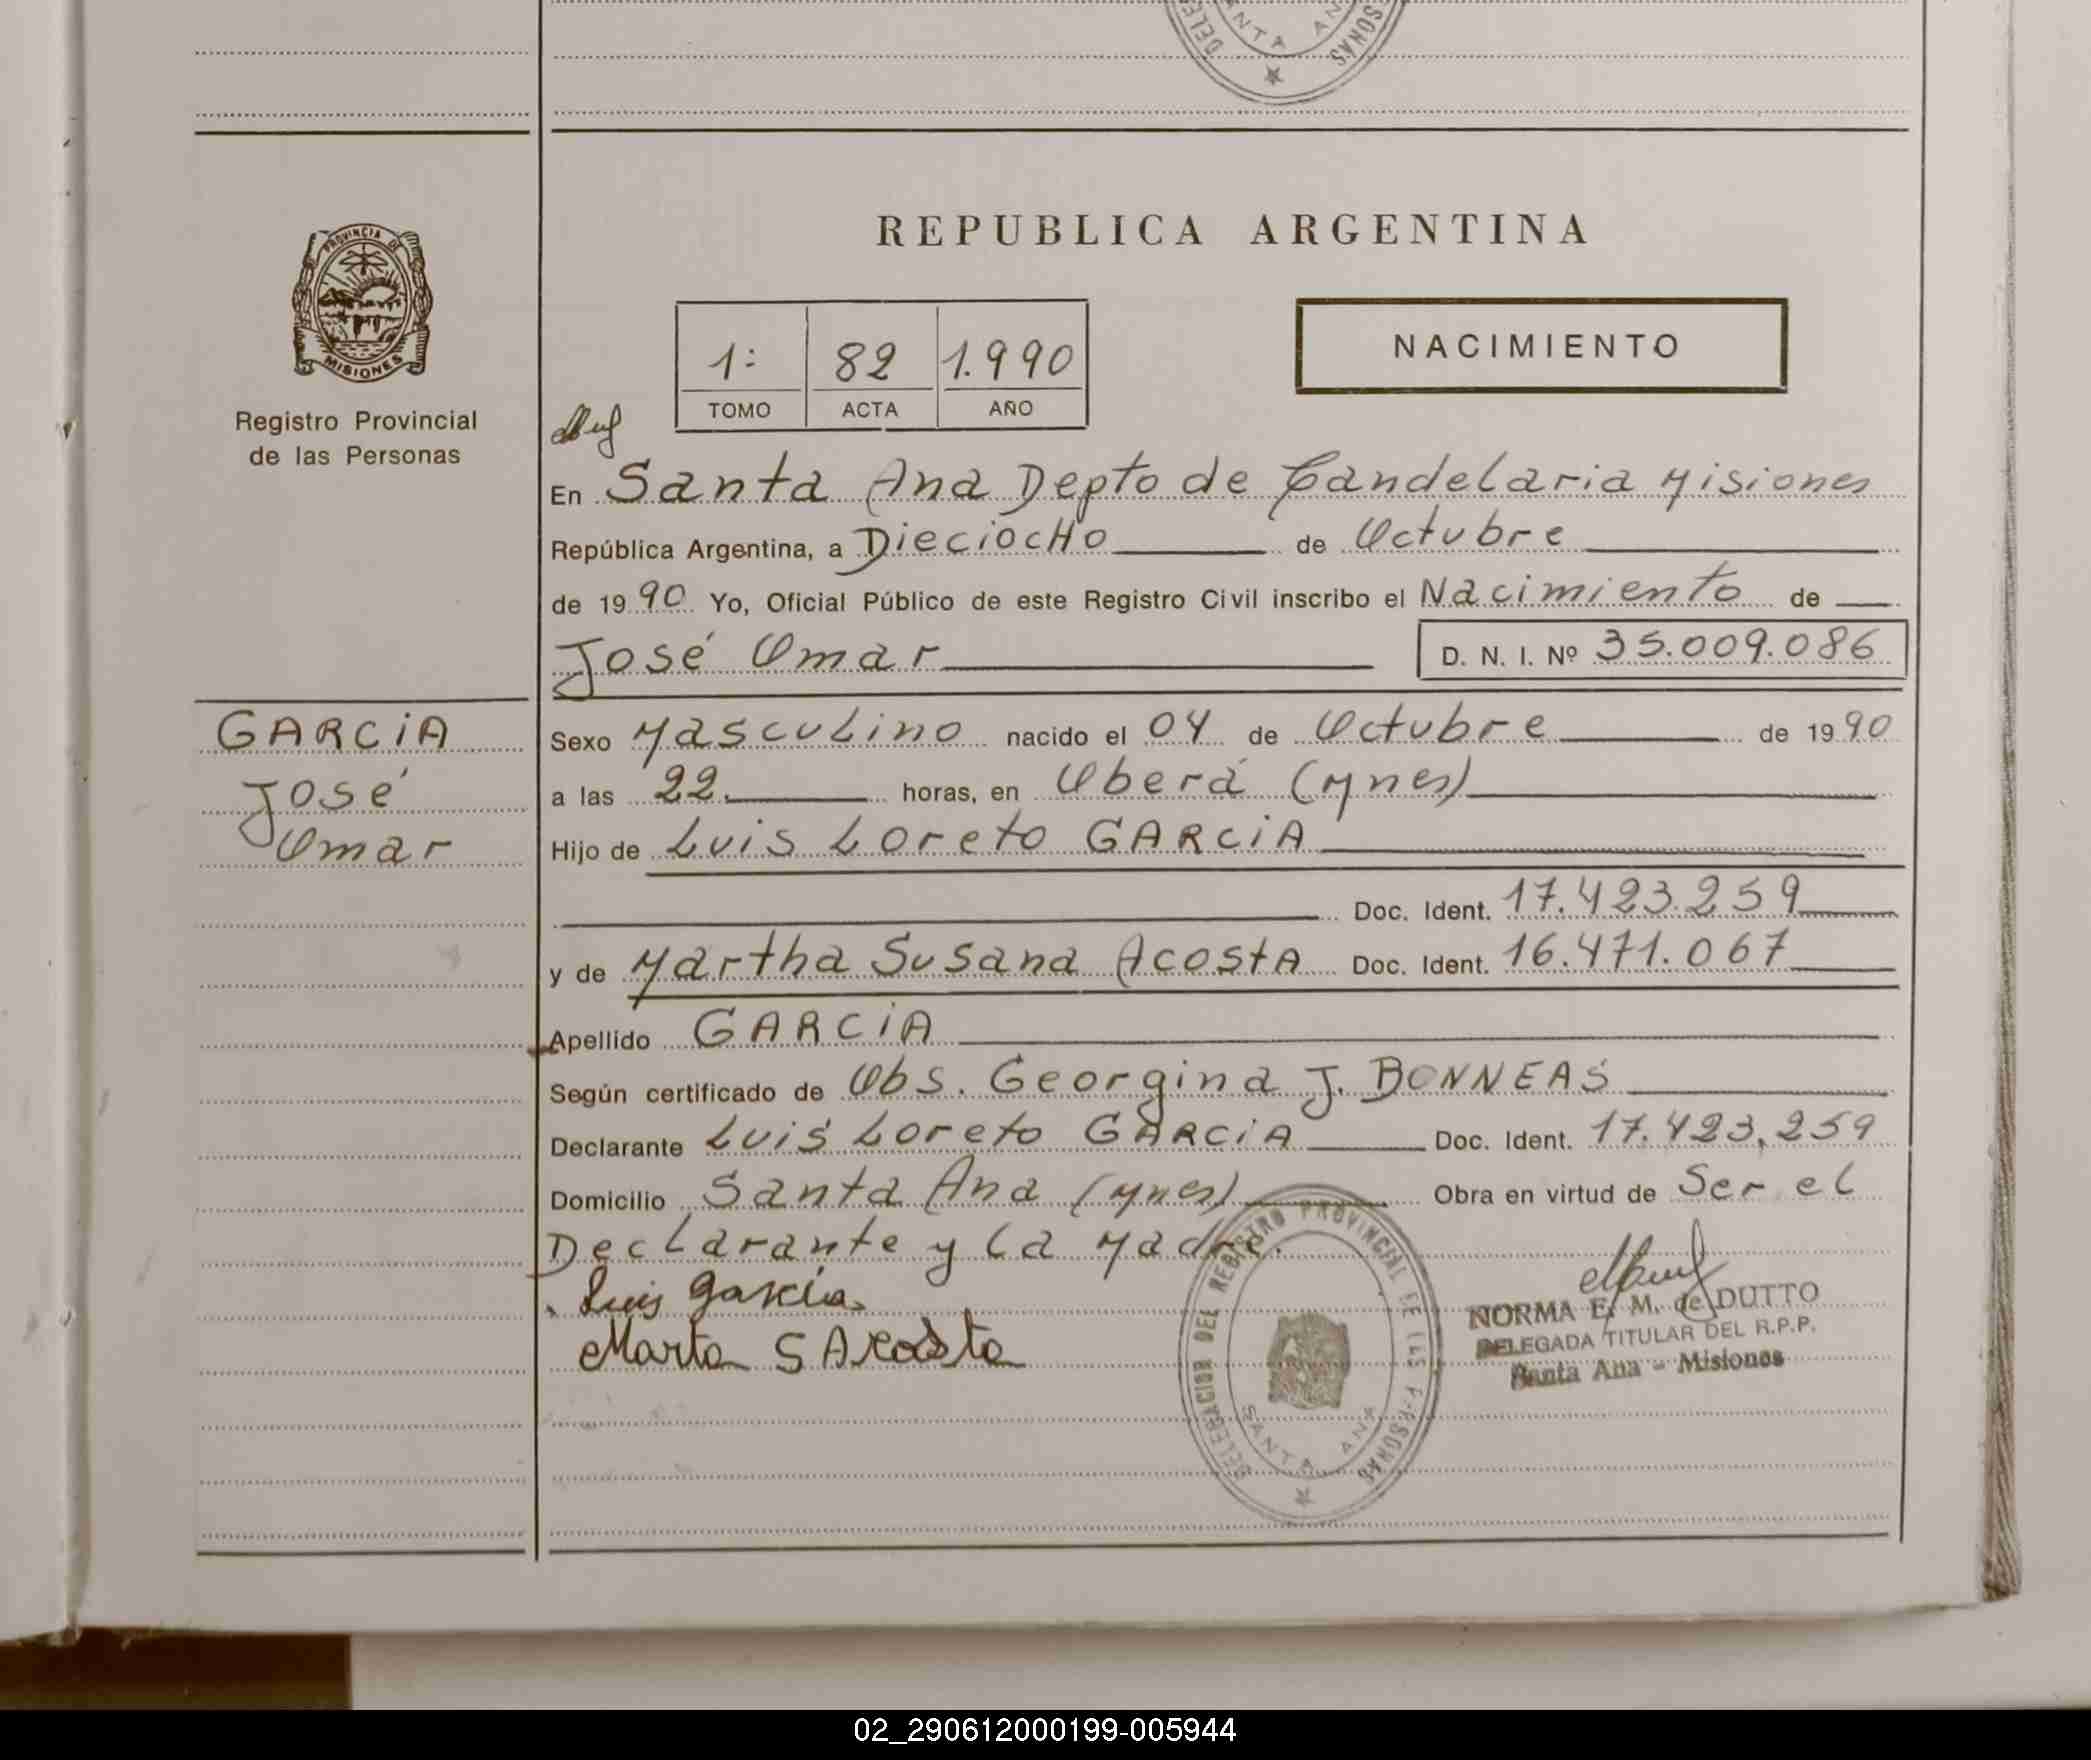 DELE ANTA ANA SONAS
PROVINCIA DE
MISIONES
Registro Provincial
de las Personas
REPUBLICA ARGENTINA
1: 82 1.990
TOMO ACTA AÑO
NACIMIENTO
En Santa Ana Depto de Candelaria Misiones
República Argentina, a Dieciocho de Octubre
de 1990 Yo, Oficial Público de este Registro Civil inscribo el Nacimiento de
José Omar D. N. I. Nº 35.009.086
GARCIA
José
Omar
Sexo Masculino nacido el 04 de Octubre de 1990
a las 22. horas, en Oberá (Mnes)
Hijo de Luis Loreto GARCIA
Doc. Ident. 17.423.259
y de Martha Susana Acosta Doc. Ident. 16.471.067
Apellido GARCIA
Según certificado de Obs. Georgina J. BONNEAS
Declarante Luis Loreto GARCIA Doc. Ident. 17.423.259
Domicilio Santa Ana (Mnes) Obra en virtud de Ser el
Declarante y la Madre.
Luis Garcia
Marta S Acosta
DELEGACION DEL REGISTRO PROVINCIAL DE LAS PERSONAS
SANTA ANA
NORMA E. M. de DUTTO
DELEGADA TITULAR DEL R.P.P.
Santa Ana - Misiones
02_290612000199-005944